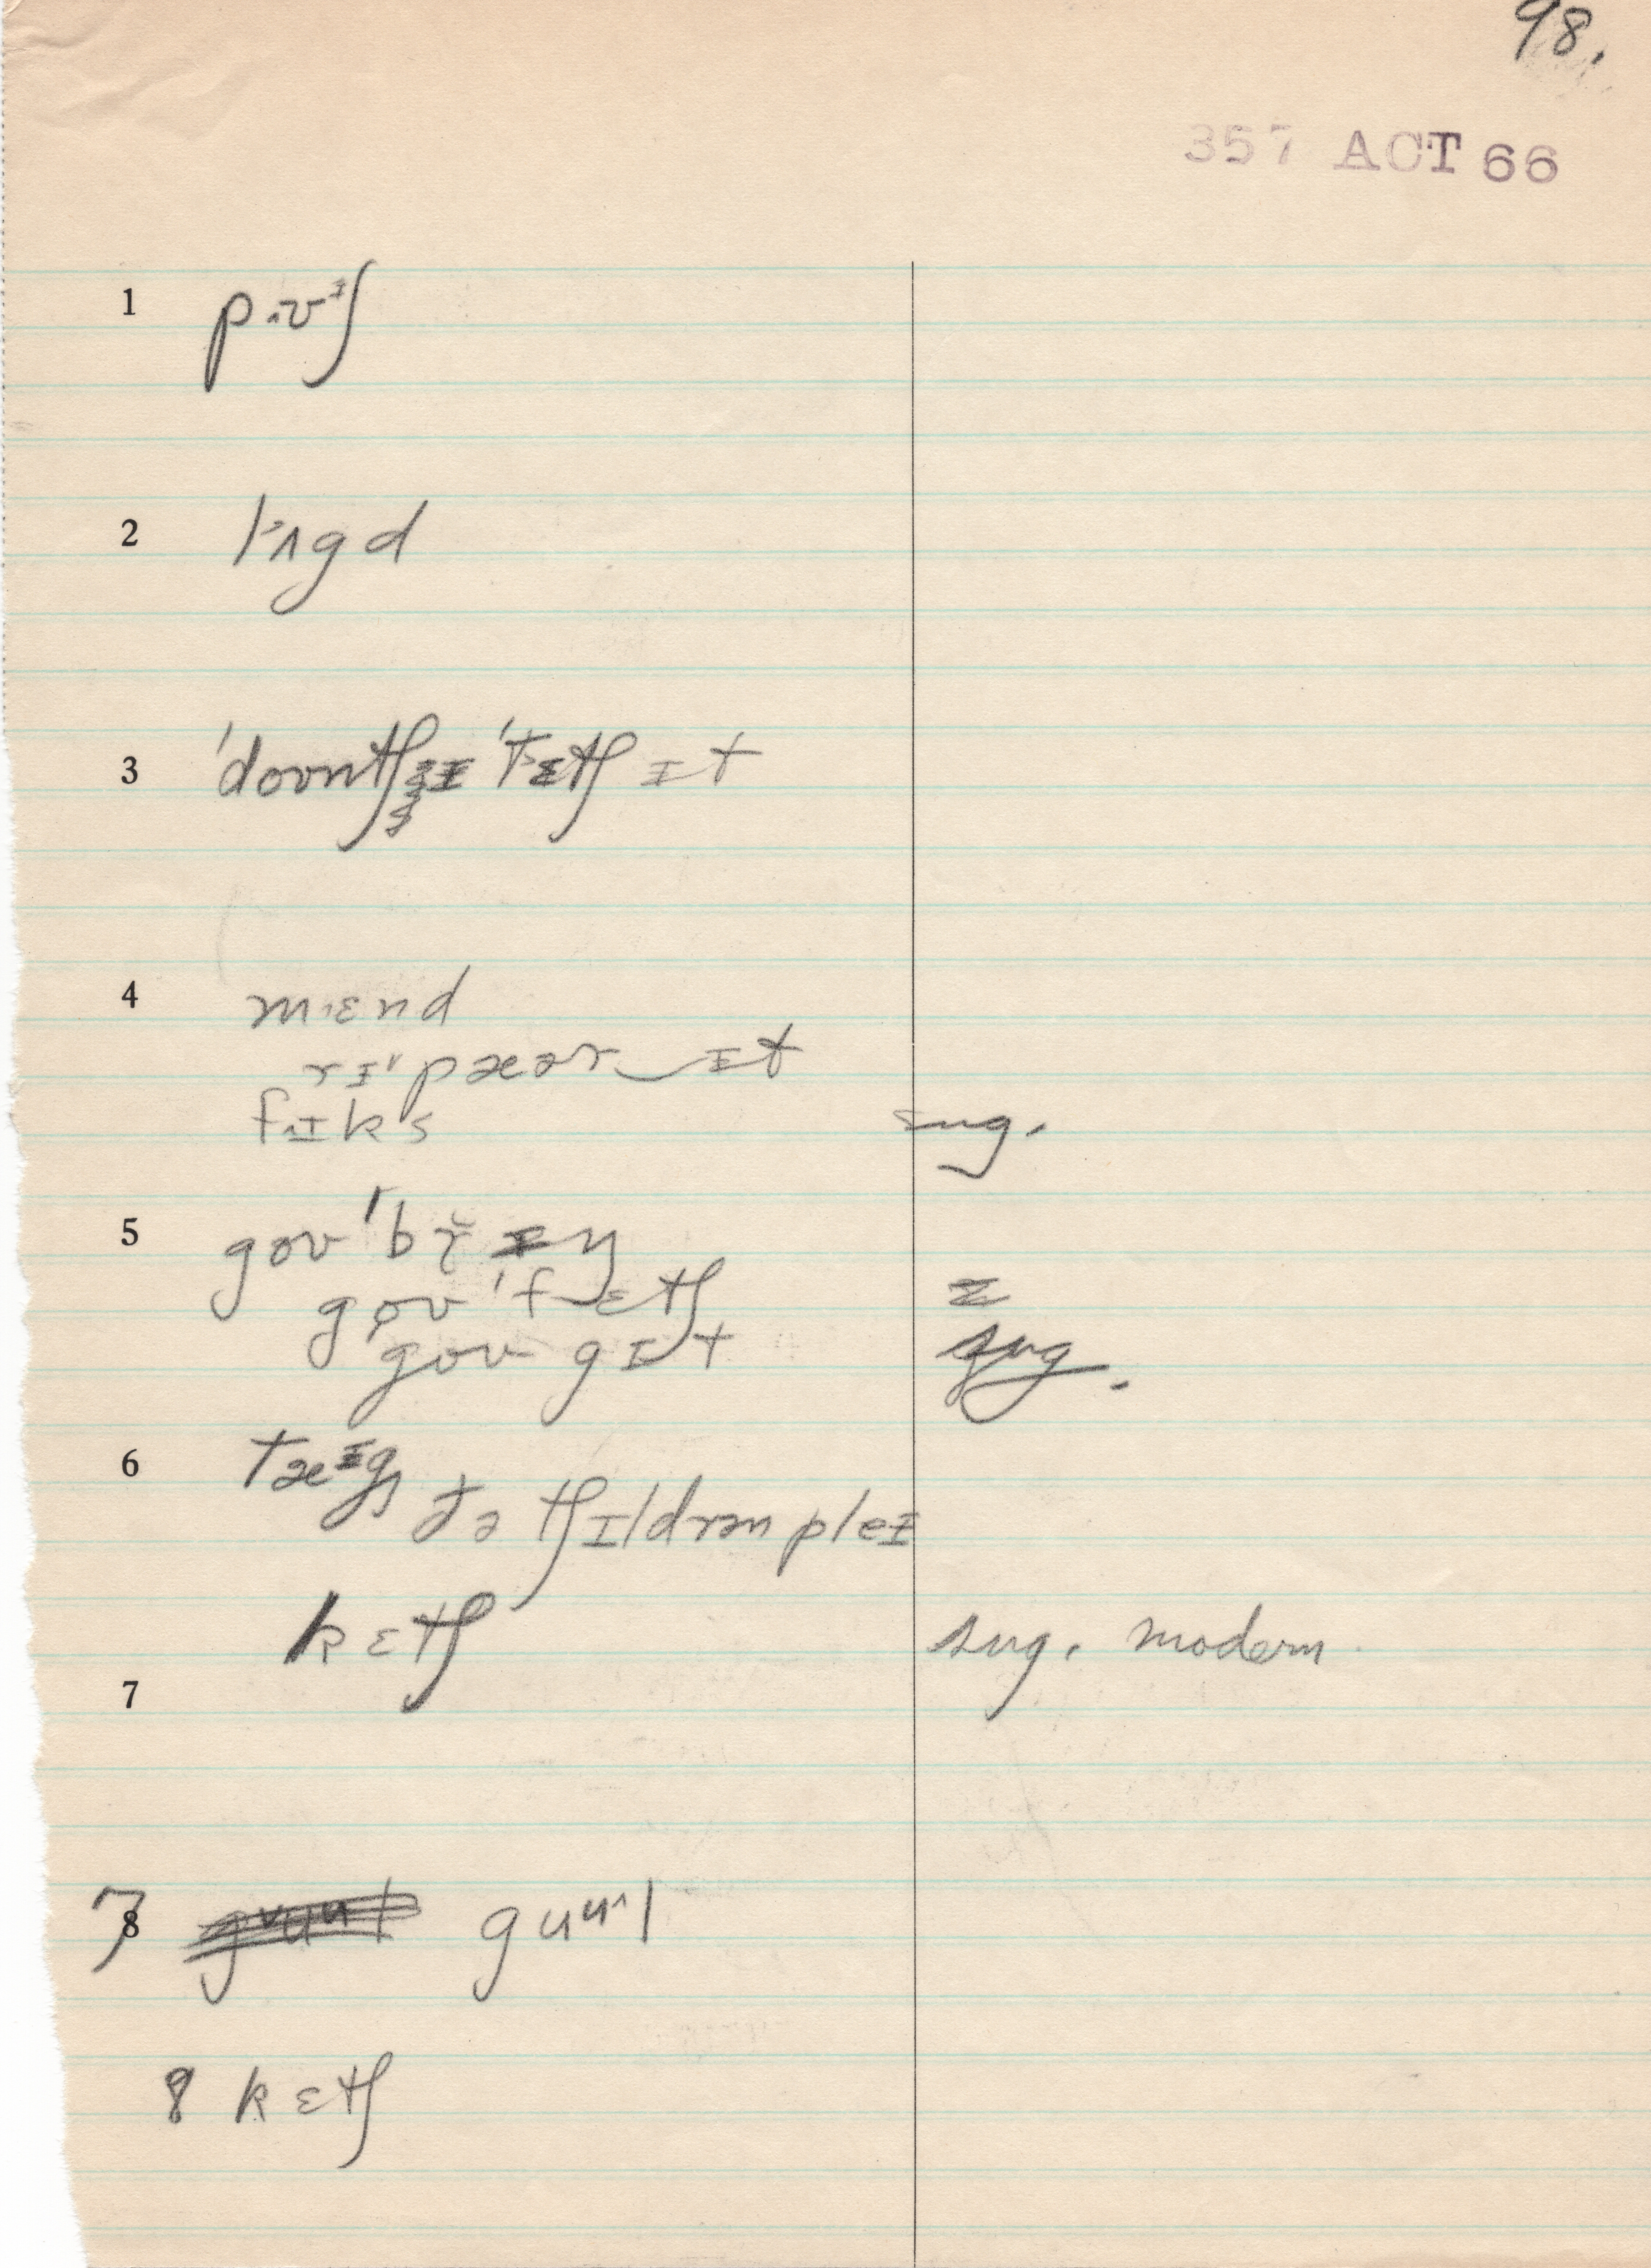 98.
357 ACT 66
1 pʌʊᶦʃ
2 lʌgd
3 ˈdoʊntʃɪ ˈtɛtʃ ɪt
4 mɛnd
rɪˈpæər‿ɪt
fɪks sug.
5 goʊ ˈbr̆ɪŋ
goʊ ˈfɛtʃ
goʊ gɪt sug.
6 tæᶦg
ðə tʃɪldrən pleɪ
kɛtʃ sug. modern
7
7 8 guᵘl
8 kɛtʃ